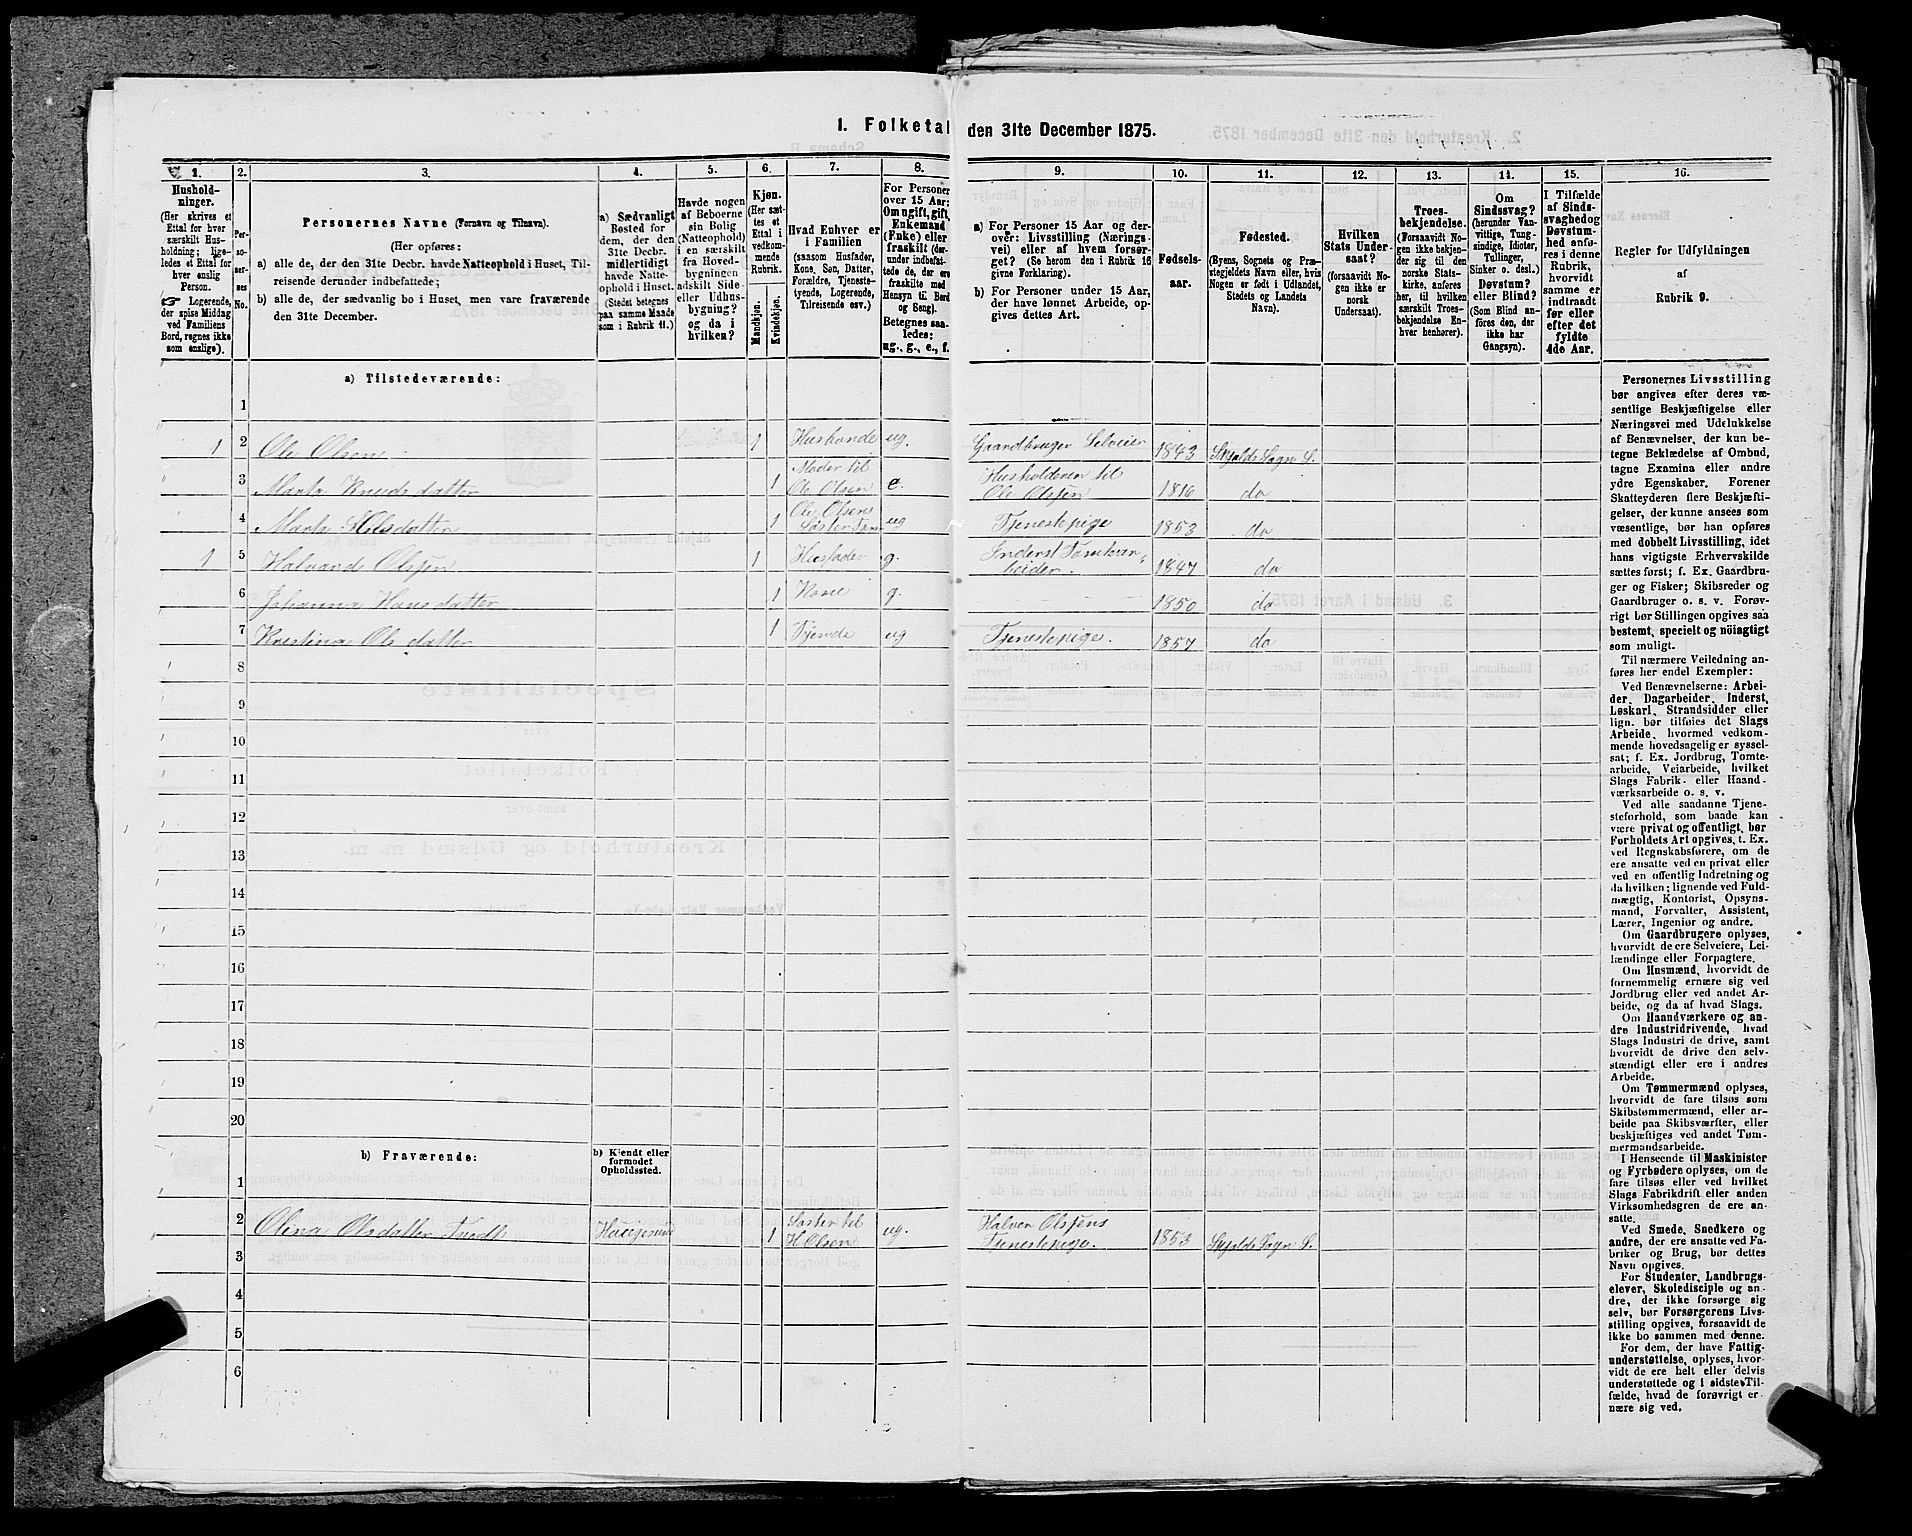 1. Folketal den 31te December 1875.
1. 2. 3. 4. 5. 6. 7. 8. 9. 10. 11. 12. 13. 14. 15. 16.
Hushold-
ninger.
(Her skrives et
Ettal for hver
særskilt Hus-
holdning; lige-
ledes et Ettal for
hver enslig
Person.
☞ Logerende,
der spise Middag
ved Familiens
Bord, regnes ikke
som enslige).
Per-
so-
ner-
nes
No.
Personernes Navne (Fornavn og Tilnavn).
(Her opføres:
a) alle de, der den 31te Decbr. havde Natteophold i Huset, Til-
reisende derunder indbefattede;
b) alle de, der sædvanlig bo i Huset, men vare fraværende
den 31te December.
a) Sædvanligt
Bosted for
dem, der den
31te Decbr.
midlertidigt
havde Natte-
ophold i Huset.
(Stedet betegnes
paa samme Maade
som i Rubrik 11.)
Havde nogen
af Beboerne
sin Bolig
(Natteophold)
i en særskilt
fra Hoved-
bygningen
adskilt Side-
eller Udhus-
bygning?
og da i
hvilken?
Kjøn.
(Her sæt-
tes et
Ettal i
vedkom-
mende
Rubrik.
Mandkjøn.
Kvindekjøn.
Hvad Enhver er
i Familien
(saasom Husfader,
Kone, Søn, Datter,
Forældre, Tjeneste-
tyende, Logerende,
Tilreisende osv.)
For Personer
over 15 Aar:
Om ugift, gift,
Enkemand
(Enke) eller
fraskilt (der-
under indbefat-
tede de, der ere
fraskilte med
Hensyn til Bord
og Seng).
Betegnes saa-
ledes:
ug., g., e., f.
a) For Personer 15 Aar og der-
over: Livsstilling (Nærings-
vei) eller af hvem forsør-
get? (Se herom den i Rubrik 16
givne Forklaring).
b) For Personer under 15 Aar,
der have lønnet Arbeide, op-
gives dettes Art.
Fødsels-
aar.
Fødested.
(Byens, Sognets og Præ-
stegjeldets Navn eller, hvis
Nogen er født i Udlandet,
Stedets og Landets
Navn).
Hvilken
Stats Under-
saat?
(forsaavidt No-
gen ikke er
norsk
Undersaat).
Troes-
bekjendelse.
(Forsaavidt No-
gen ikke bekjen-
der sig til den
norske Stats-
kirke, anføres
her, til hvilken
særskilt Troes-
bekjendelse En-
hver henhører).
Om
Sindssvag?
(herunder Van-
vittige, Tung-
sindige, Idioter,
Tullinger,
Sinker o. desl.)
Døvstum?
eller Blind?
(Som Blind an-
føres den, der
ikke har
Gangsyn).
I Tilfælde
af Sinds-
svaghed og
Døvstum-
hed anfø-
res i denne
Rubrik,
hvorvidt
samme er
indtraadt
før eller
efter det
fyldte
4de Aar.
Regler for Udfyldningen
af
Rubrik 9.
a) Tilstedeværende:
1
1 2 Ole Olsen 1 Husbonde ug. Gaardbruger Selveier 1843 Skjolds Sogn S.
3 Marta Knudsdatter 1 Moder til Ole Olsen e. Husholderen til Ole Olsen 1816 do
4 Marta Olsdatter 1 Ole Olsens Søster ug Tjenestepige 1853 do
1 5 Halvand Olsen 1 Husfader g. Inderst 1847 do
6 Johanna Hansdatter 1 Kone g. 1850 do
7 Kristina Olsdatter 1 ug Tjenestepige. 1857 do
8
9
10
11
12
13
14
15
16
17
18
19
20
b) Fraværende:
b) Kjendt eller
formodet
Opholdssted.
1
2 Olina Olsdatter 1 Søster til H Olsen ug. Tjenestepige. 1853 Skjolds Sogn S.
3
4
5
6
Personernes Livsstilling
bør angives efter deres væ-
sentlige Beskjæftigelse eller
Næringsvei med Udelukkelse
af Benævnelser, der kun be-
tegne Beklædelse af Ombud,
tagne Examina eller andre
ydre Egenskaber. Forener
Skatteyderen flere Beskjæfti-
gelser, der kunne ansees som
væsentlige, bør han opføres
med dobbelt Livsstilling, idet
hans vigtigste Erhvervskilde
sættes først; f. Ex. Gaardbru-
ger og Fisker; Skibsreder og
Gaardbruger o. s. v. Forøv-
rigt bør Stillingen opgives saa
bestemt, specielt og nöiagtigt
som muligt.
Til nærmere Veiledning an-
føres her endel Exempler:
Ved Benævnelserne: Arbei-
der, Dagarbeider, Inderst,
Løskarl, Strandsidder eller
lign. bør tilføies det Slags
Arbeide, hvormed vedkom-
mende hovedsagelig er syssel-
sat; f. Ex. Jordbrug, Tomte-
arbeide, Veiarbeide, hvilket
Slags Fabrik- eller Haand-
værksarbeide o. s. v.
Ved alle saadanne Tjene-
steforhold, som baade kan
være privat og offentligt, bør
Forholdets Art opgives, t. Ex.
ved Regnskabsførere, om de
ere ansatte ved en privat eller
ved en offentlig Indretning og
da hvilken; lignende ved Fuld-
mægtig, Kontorist, Opsyns-
mand, Forvalter, Assistent,
Lærer, Ingeniør og andre.
Om Gaardbrugere oplyses,
hvorvidt de ere Selveiere, Lei-
lændinge eller Forpagtere.
Om Husmænd, hvorvidt de
fornemmelig ernære sig ved
Jordbrug eller ved andet Ar-
beide, og da af hvad Slags.
Om Haandværkere og an-
dre Industridrivende, hvad
Slags Industri de drive, samt
hvorvidt de drive den selv-
stændigt eller ere i andres
Arbeide.
Om Tømmermænd oplyses,
hvorvidt de fare tilsøs som
Skibstømmermænd, eller ar-
beide paa Skibsværfter, eller
beskjæftiges ved andet Tøm-
mermandsarbeide.
I Henseende til Maskinister
og Fyrbødere oplyses, om de
fare tilsøs eller ved hvilket
Slags Fabrikdrift eller anden
Virksomhedsgren de ere an-
satte.
Ved Smede, Snedkere og
andre, der ere ansatte ved Fa-
briker og Brug, bør dettes
Navn opgives.
For Studenter, Landbrugs-
elever, Skoledisciple og an-
dre, der ikke forsørge sig
selv, bør Forsørgerens Livs-
stilling opgives, forsaavidt de
ikke bo sammen med denne.
For dem, der have Fattig-
understøttelse, oplyses, hvor-
vidt de ere helt eller delvis
understøttede og i sidste Til-
fælde, hvad de forøvrigt er-
nære sig ved.